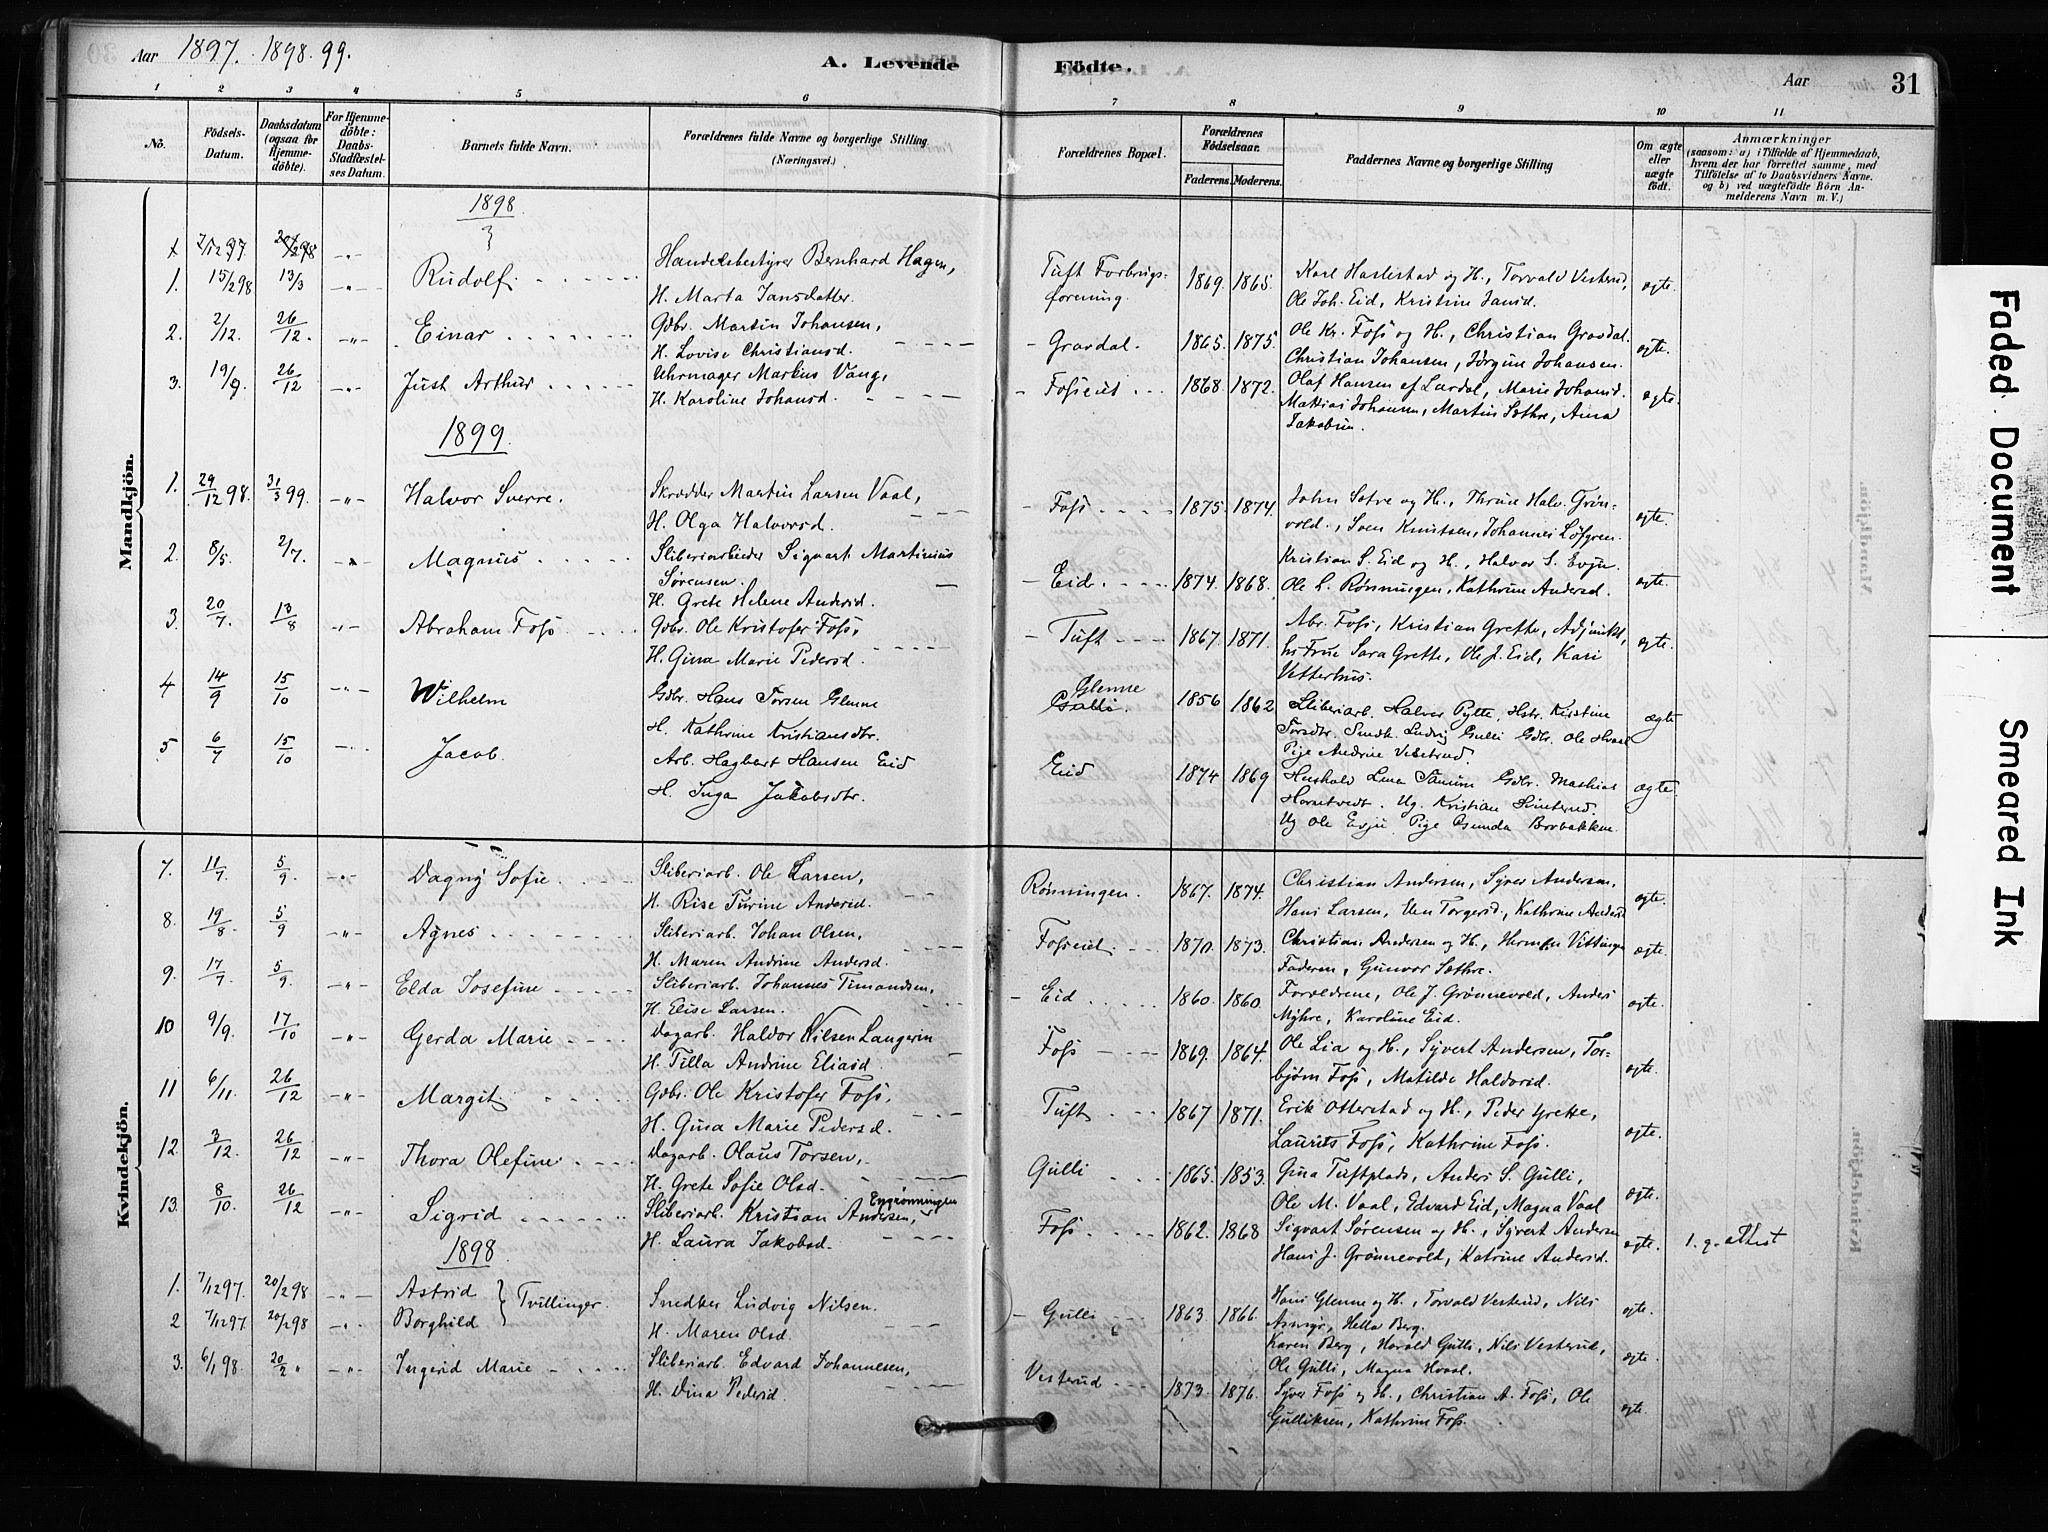 Aar 1897. 1898. 99.
A. Levende Födte.
Aar 31
1 2 3 4 5 6 7 8 9 10 11
No.
Födsels-Datum.
Daabsdatum (ogsaa for Hjemmedöbte).
For Hjemmedöbte: Daabs-Stadfæstelses Datum.
Barnets fulde Navn.
Forældrenes fulde Navne og borgerlige Stilling
(Næringsvei.)
Forældrenes Bopæl.
Forældrenes Födselsaar.
Faderens. Moderens.
Faddernes Navne og borgerlige Stilling
Om ægte eller uægte födt.
Anmærkninger
(saasom: a) i Tilfælde af Hjemmedaab,
hvem der har forrettet samme, med
Tilföielse af to Daabsvidners Navne,
og b) ved uægtefödte Börn An-
melderens Navn m. V.)
Mandkjön.
1898
1. 15/2 98 13/3 -"- Rudolf Handelsbestyrer Bernhard Hagen, Tuft Forbrugs- 1869. 1865. Karl Haslestad og H., Torvald Vesterud, ægte.
H. Marta Jansdatter. forening. Ole Joh. Eid, Kristine Jansd.
2. 2/12. 26/12. -"- Einar Gdbr. Martin Johansen, Gravdal. 1865. 1875. Ole Kr. Foss og H., Christian Gravdal. ægte.
H. Lovise Christiansd. Christian Johansen, Jørgine Johansen.
3. 19/9. 26/12 -"- Just Arthur Uhrmager Markus Vang, Fosseiet 1868 1872. Olaf Hansen af Lardal, Marie Johansd. ægte.
H. Karoline Johansd. Mathias Johansen, Martin Sæthre, Anna
Jakobsen.
1899.
1. 29/12 98. 31/3 99. -"- Halvor Sverre. Skrædder Martin Larsen Vaal, Foss 1875. 1874. John Sætre og H., Thrine Halv. Grøn- ægte.
H. Olga Halvorsd. vold., Sven Knutsen, Johannes Löfgren.
2. 8/5. 2/7. -"- Magnus Sliberiarbeider Sigvart Martinius Eid. 1874. 1868. Kristian S. Eid og H., Halvor S. Evju. ægte.
Sørensen.
H. Grete Helene Andersd. Ole L. Rønningen, Kathrine Andersd.
3. 20/7. 13/8 -"- Abraham Foss Gdbr. Ole Kristofer Foss, Tuft 1867. 1871. Abr. Foss, Kristian Grette, Adjunkt, ægte.
H. Gina Marie Pedersd. hs Frue Sara Grette, Ole J. Eid, Kari
Vetterhus.
4 14/9 15/10 -"- Wilhelm Gdbr. Hans Torsen Glenne Glenne 1856 1862 Sliberiarb. Halvor Pytte, Hstr. Kirstine ægte
H. Kathrine Kristiansdtr. Torsdtr. Smedk. Ludvig Gulli Gdbr. Ole Hvaal
Pige Andrine Vesterud.
5 6/7 15/10 -"- Jacob. Arb. Hagbart Hansen Eid Eid 1874 1869 Hushold. Lina Gdbr. Mathias ægte.
H. Inga Jakobsdtr. Horntvedt. Ug. Kristian
Ug Ole Evju. Pige Gunda Brobakken
Kvindekjön.
7. 11/7. 5/9. -"- Dagny Sofie. Sliberiarb. Ole Larsen, Rönningen. 1867. 1874. Christian Andersen, Syver Andersen, ægte.
H. Rise Turine Andersd. Hans Larsen, Elen Torgersd., Kathrine Andersd
8. 19/8 5/9 -"- Agnes. Sliberiarb. Johan Olsen, Fosseiet. 1870. 1873. Christian Andersen og H., Herman Vittingen ægte.
H. Maren Andrine Andersd. Faderen, Gunvor Sæthre.
9. 17/7. 5/9. -"- Elda Josefine Sliberiarb. Johannes Timandsen, Eid 1860. 1860. Forældrene, Ole J. Grönnevold, Anders ægte.
H. Elise Larsen. Myhre, Karoline Eid.
10 9/9. 17/10 -"- Gerda Marie Dagarb. Haldor Nilsen Langerin Foss 1869. 1864. Ole Lia og H., Syvert Andersen, Tor- ægte.
H. Tilla Andrine Eliasd. bjørn Foss, Matilde Haldorsd.
11 6/11. 26/12 -"- Margit Gdbr. Ole Kristofer Foss, Tuft 1867 1871. Erik Otterstad og H., Peder Grette, ægte.
H. Gina Marie Pedersd. Laurits Foss, Kathrine Foss.
12. 3/12. 26/12 -"- Thora Olefine Dagarb. Olaus Torsen, Gulli 1865. 1853. Gina Tuftplads, Anders S. Gulli, ægte.
H. Grete Sofie Olsd. Ole M. Vaal, Edvard Eid, Magna Vaal
13. 8/10. 26/12 -"- Sigrid Sliberiarb. Kristian Andersen, Engrønningen Foss 1862. 1868 Sigvart Sørensen og H., Syvert Andersen ægte. 1. g. attest
H. Laura Jakobsd. Hans J. Grönnevold, Katrine Andersd.
1898
1. 7/12 97. 20/2 98 -"- Astrid } Tvillinger. Snedker Ludvig Nilsen. Gulli 1863 1866. Hans Glenne og H., Torvald Vesterud, Nils ægte.
Asmyr, Hella Berg.
2 7/12 97. 20/2 98 -"- Borghild H. Maren Olsd. Karen Berg, Harald Gulli, Nils Vesterud, ægte.
Ole Gulli, Magna Hvaal.
3. 6/1 98. 20/2 " -"- Ingerid Marie Sliberiarb. Edvard Johannesen, Vesterud 1873. 1876. Syver Foss og H., Christian A. Foss, Ole ægte.
H. Dina Pedersd. Gulliksen, Kathrine Foss.
Faded Document
Smeared Ink